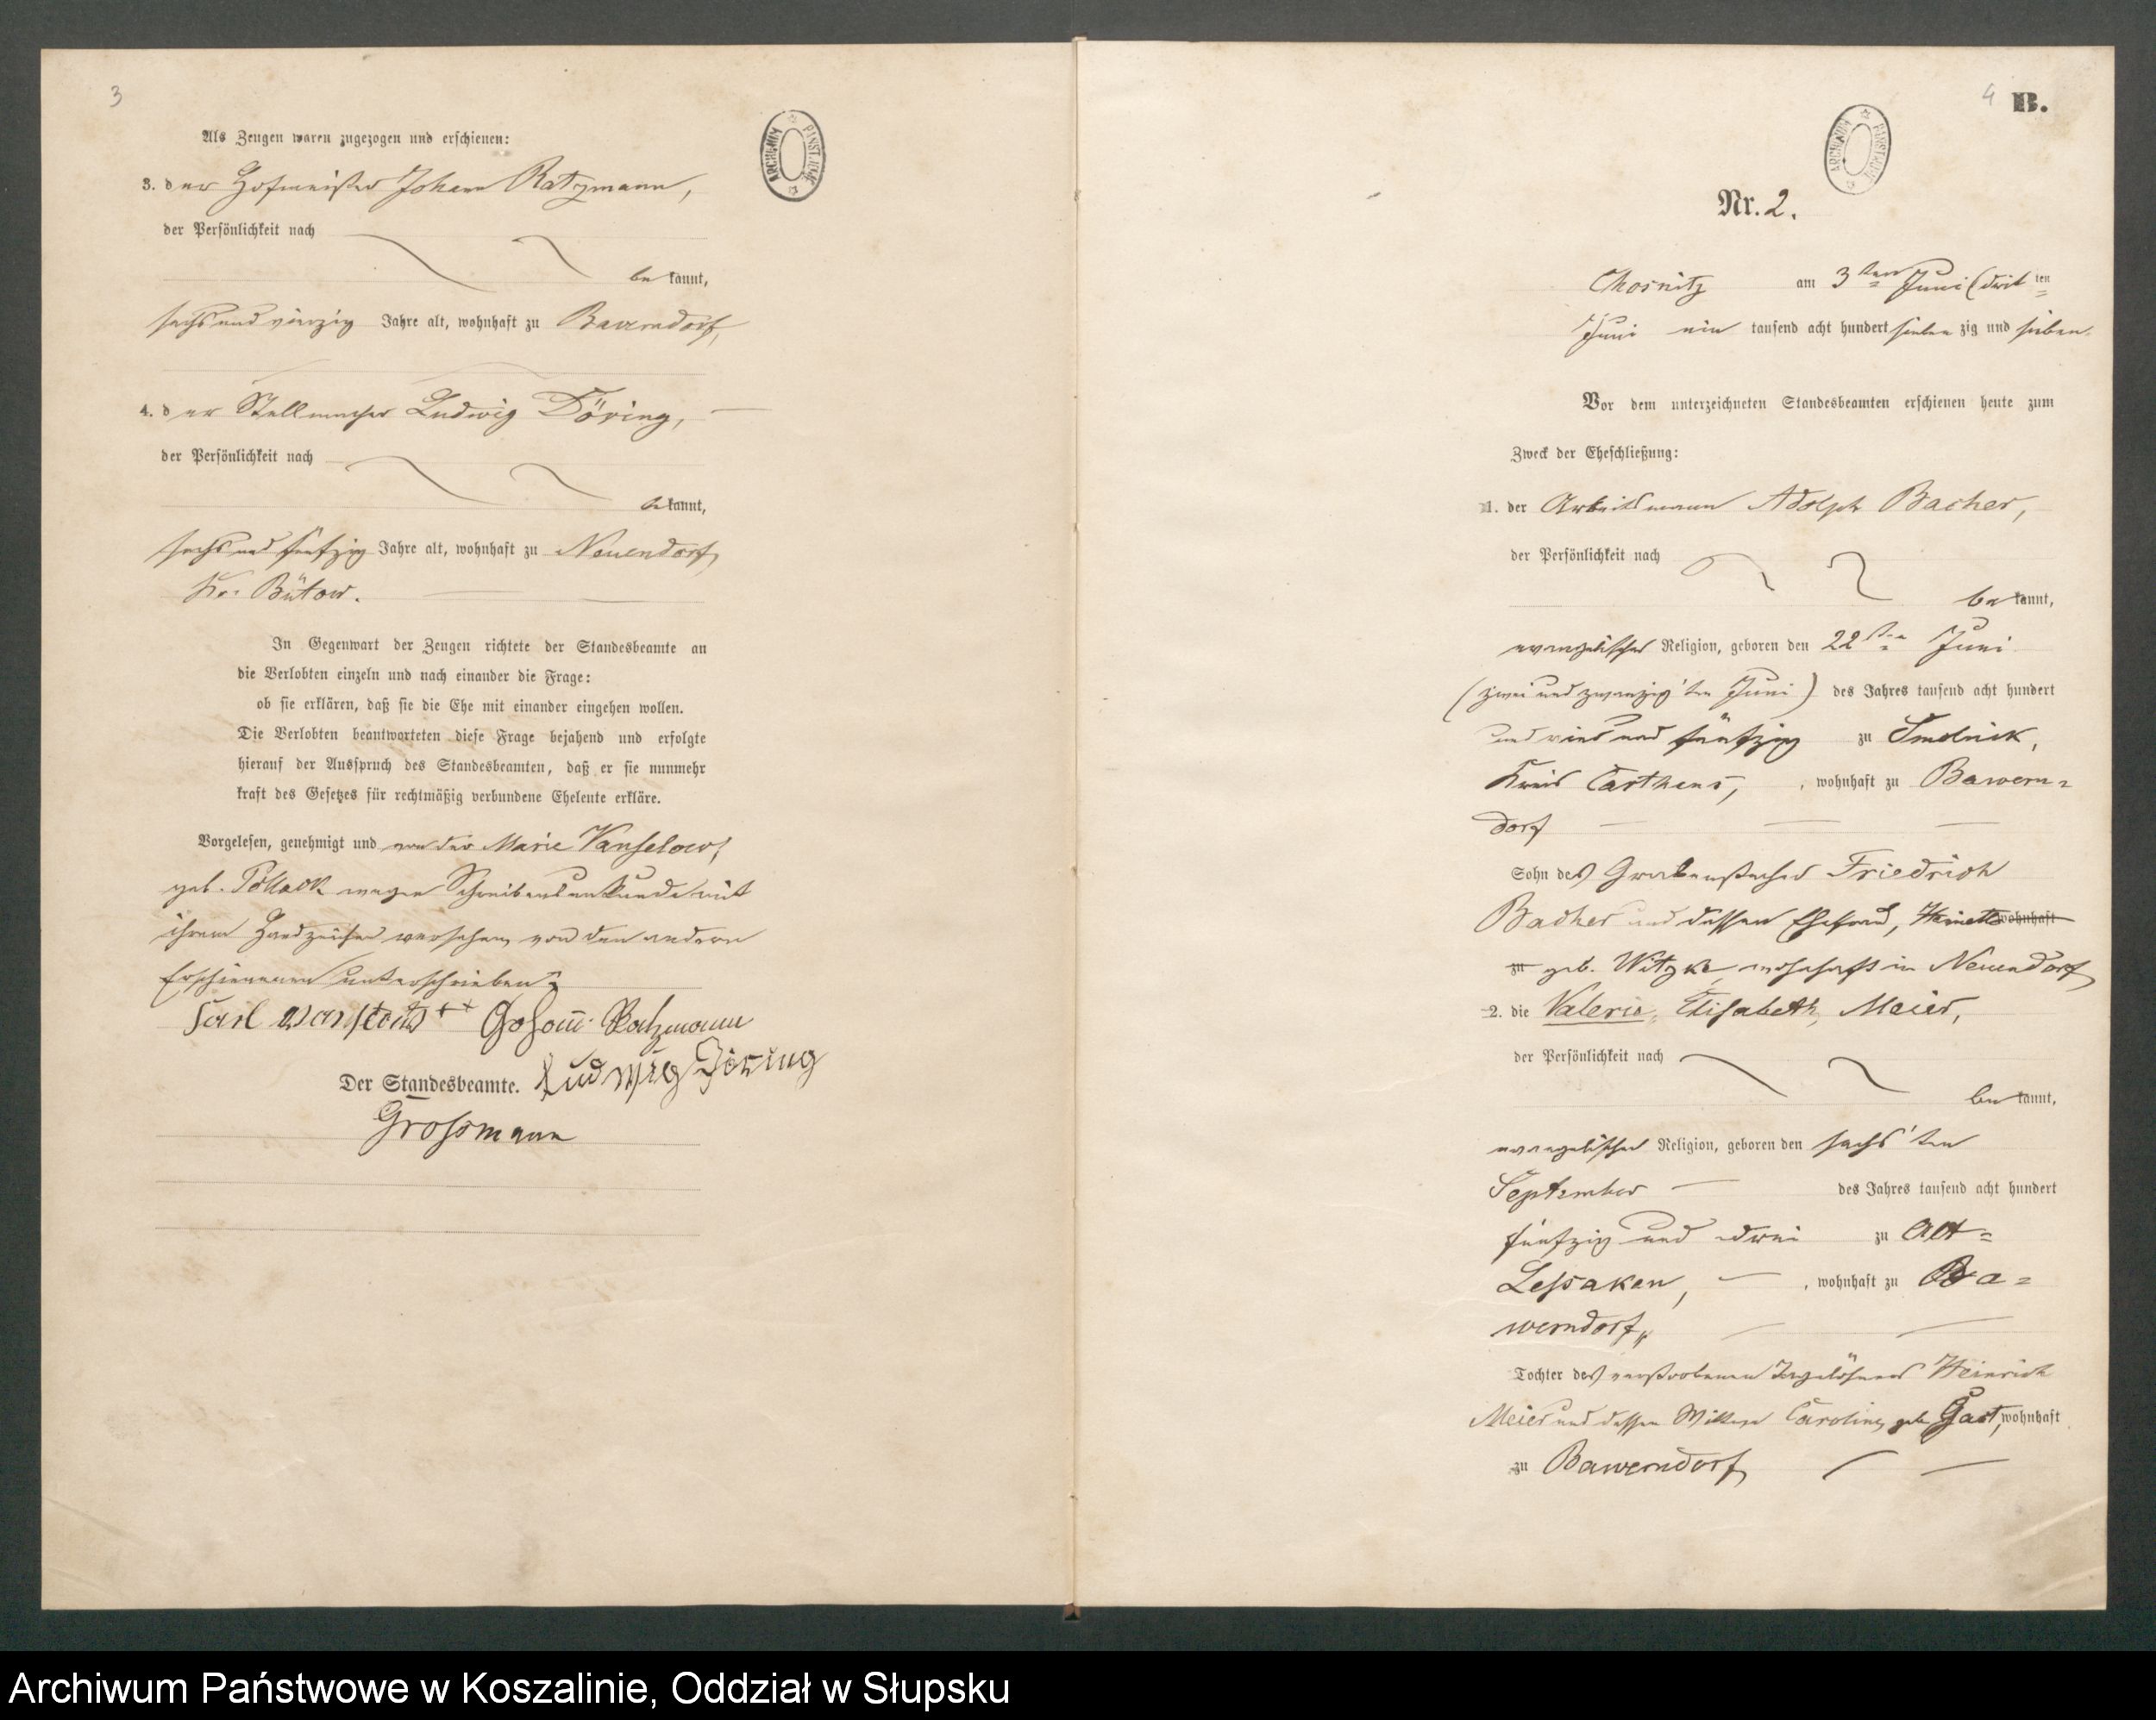 3
Als Zeugen waren zugezogen und erschienen:
3. der Hofmeister Johann Ratzmann,
der Persönlichkeit nach
be kannt,
sechs und vierzig Jahre alt, wohnhaft zu Bawerndorf,
4. der Stellmacher Ludwig Döring,
der Persönlichkeit nach
be kannt,
sechs und fünfzig Jahre alt, wohnhaft zu Neuendorf
Kr. Bütow.
In Gegenwart der Zeugen richtete der Standesbeamte an
die Verlobten einzeln und nach einander die Frage:
ob sie erklären, daß sie die Ehe mit einander eingehen wollen.
Die Verlobten beantworteten diese Frage bejahend und erfolgte
hierauf der Ausspruch des Standesbeamten, daß er sie nunmehr
kraft des Gesetzes für rechtmäßig verbundene Eheleute erkläre.
Vorgelesen, genehmigt und von der Marie Vanselow,
geb. Pollack wegen Schreibensunkunde mit
ihrem Handzeichen versehen, von den andern
Erschienenen unterschrieben.
Carl +++ Johann Ratzmann
Der Standesbeamte. Ludwig Döring
Grossmann
ARCHIWUM PAŃSTWOWE
4 B.
ARCHIWUM PAŃSTWOWE
Nr. 2.
Chosnitz am 3ten Juni (drit ten
Juni ein tausend acht hundert sieben zig und sieben.
Vor dem unterzeichneten Standesbeamten erschienen heute zum
Zweck der Eheschließung:
1. der Arbeitsmann Adolph Bacher,
der Persönlichkeit nach
be kannt,
evangelischer Religion, geboren den 22ten Juni
(zwei und zwanzig'ten Juni) des Jahres tausend acht hundert
und vier und fünfzig zu Smolnik,
Kreis Carthaus, , wohnhaft zu Bawern-
dorf
Sohn des Grabenstecher Friedrich
Bacher und dessen Ehefrau, wohnhaft
zu geb. Witzke, wohnhaft in Neuendorf
2. die Valeria, Elisabeth, Meier,
der Persönlichkeit nach
be kannt,
evangelischer Religion, geboren den sechs'ten
September des Jahres tausend acht hundert
fünfzig und drei zu Alt-
Lessaken, , wohnhaft zu Ba-
werndorf,
Tochter des verstorbenen Tagelöhners Heinrich
Meier und dessen Wittwe Caroline, geb. Gast, wohnhaft
zu Bawerndorf
Archiwum Państwowe w Koszalinie, Oddział w Słupsku